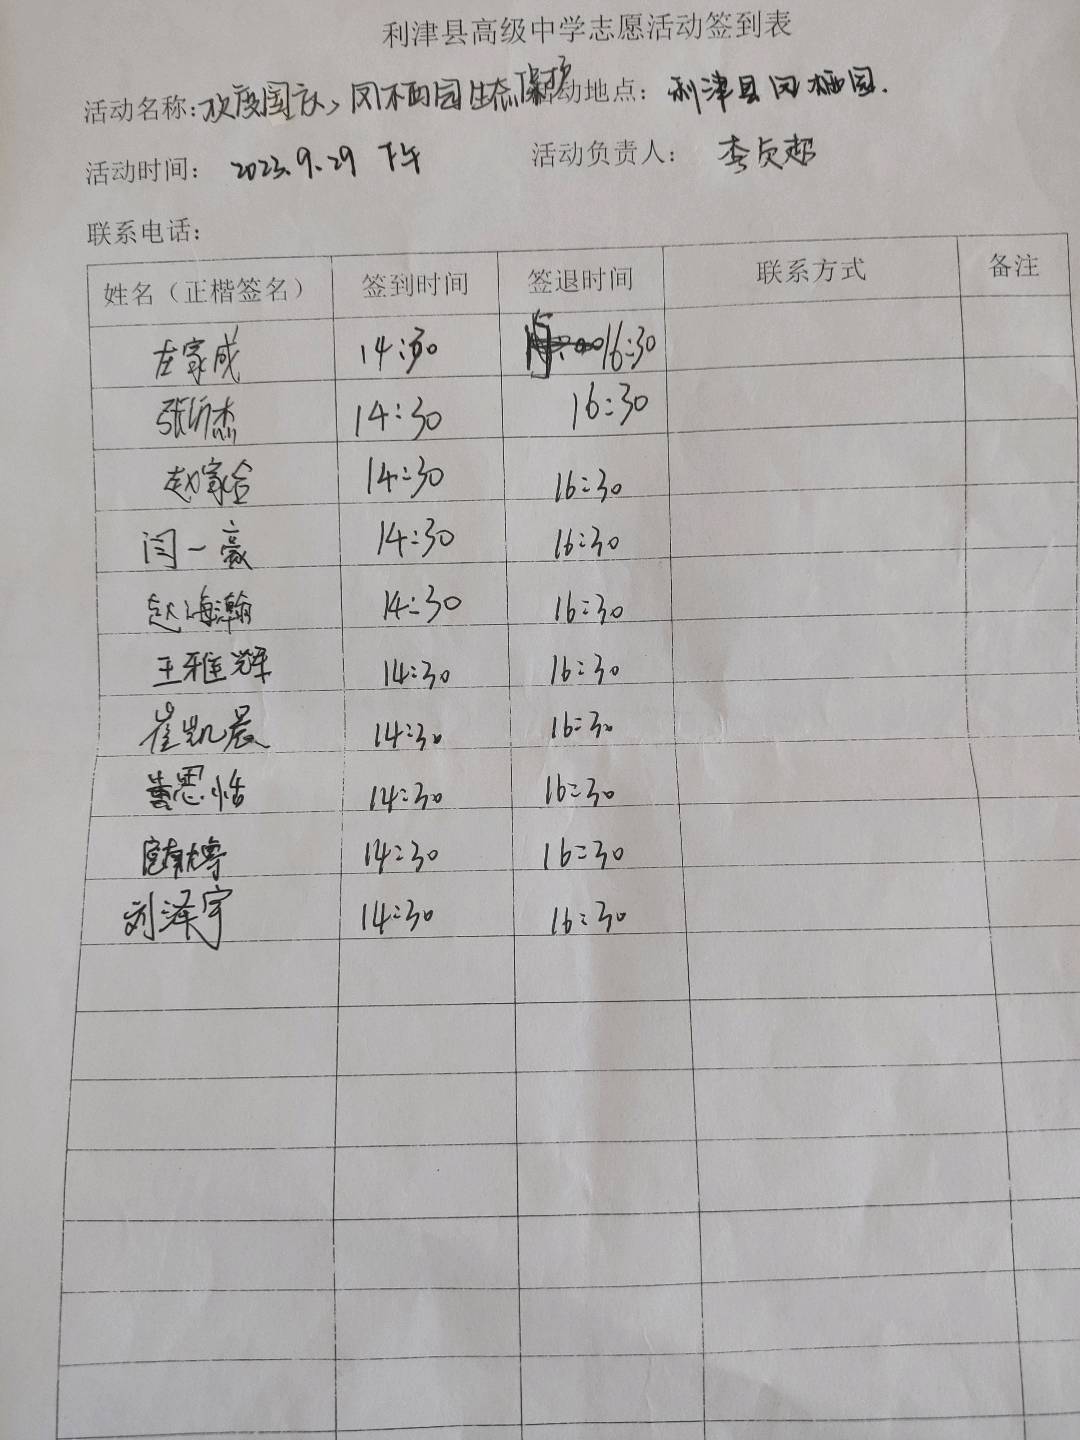 利津县高级中学志愿活动签到表
活动名称:欢度国庆、凤栖园生态 活动地点: 利津县凤栖园.
活动时间: 2023.9.29 下午 活动负责人: 李贞超
联系电话:
姓名（正楷签名） 签到时间 签退时间 联系方式 备注
左家成 14:30 16:30
张沂杰 14:30 16:30
赵家合 14:30 16:30
闫一豪 14:30 16:30
赵海瀚 14:30 16:30
王雅辉 14:30 16:30
崔凯晨 14:30 16:30
思恬 14:30 16:30
14:30 16:30
刘泽宇 14:30 16:30